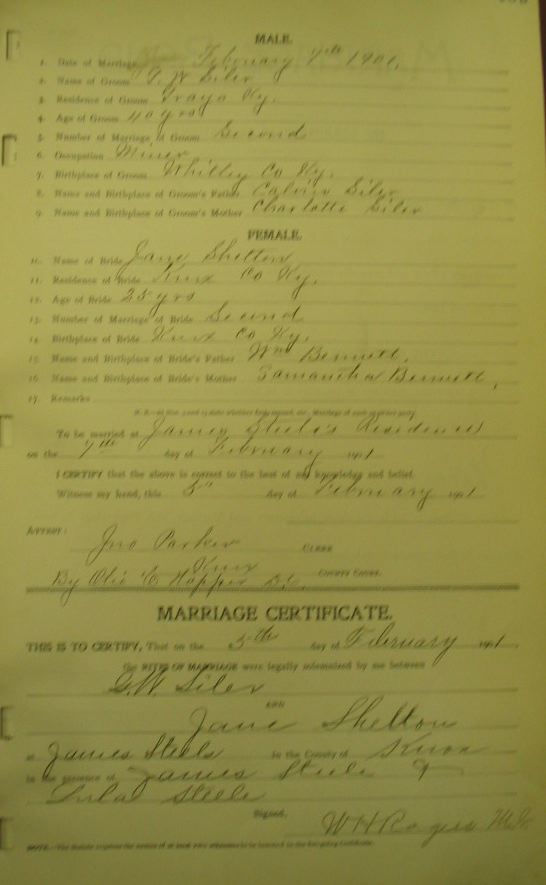 MALE.
1. Date of Marriage February 7th 1901,
2. Name of Groom G. W Siler
3. Residence of Groom Grays Ky.
4. Age of Groom 40 yrs
5. Number of Marriage of Groom Second
6. Occupation Miner
7. Birthplace of Groom Whitley Co Ky.
8. Name and Birthplace of Groom's Father Calvin Siler
9. Name and Birthplace of Groom's Mother Charlotte Siler
FEMALE.
10. Name of Bride Jane Shelton
11. Residence of Bride Knox Co Ky.
12. Age of Bride 25 yrs
13. Number of Marriage of Bride Second
14. Birthplace of Bride Knox Co Ky.
15. Name and Birthplace of Bride's Father Wm Bennett,
16. Name and Birthplace of Bride's Mother Samantha Bennett,
17. Remarks
To be married at James Steele's Residence
on the 7th day of February 1901
I CERTIFY that the above is correct to the best of my knowledge and belief.
Witness my hand, this 5" day of February 1901
ATTEST:
Jno Parker CLERK
Knox COUNTY COURT.
By Olie C Hopper D.C.
MARRIAGE CERTIFICATE.
THIS IS TO CERTIFY, That on the 5th day of February 1901.
the RITES OF MARRIAGE were legally solemnized by me between
G.W. Siler
AND
Jane Shelton
at James Steels in the County of Knox
In the presence of James Steele &
Lula Steele
Signed,
W H Rogers